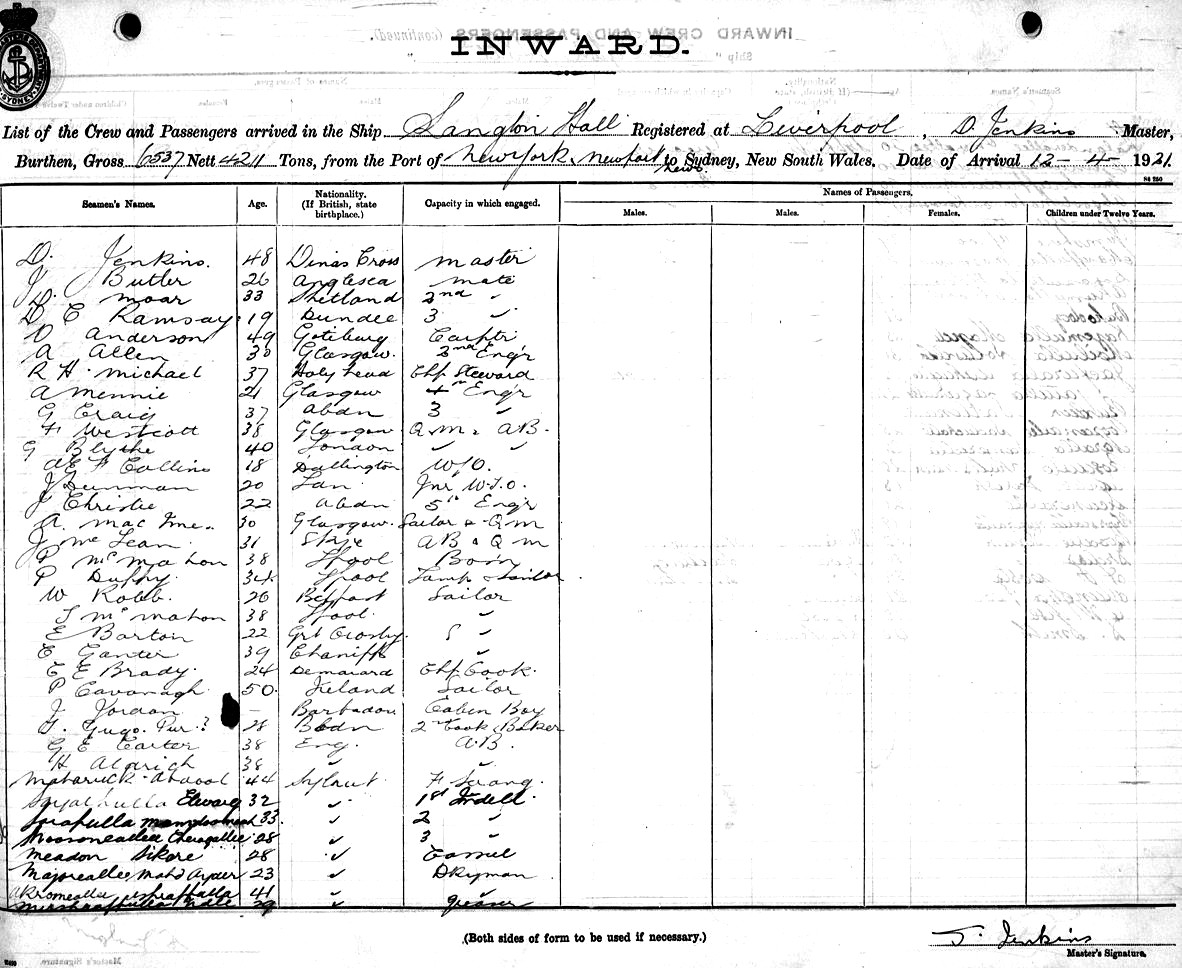 INWARD.
List of the Crew and Passengers arrived in the Ship Langton Hall Registered at Liverpool, D. Jenkins Master,
Burthen, Gross 6537 Nett 4211 Tons, from the Port of New York, Newport News to Sydney, New South Wales. Date of Arrival 12-4-1921.
Seamen's Names. Age. Nationality. (If British, state birthplace.) Capacity in which engaged. Names of Passengers.
Males. Males. Females. Children under Twelve Years.
D. Jenkins. 48 Dinas Cross Master
J Butler 26 Anglesea Mate
D. Moar 33 Shetland 2nd "
D E Ramsay 19 Dundee 3 "
O Anderson 49 Gotiburg Carptr
A Allen 30 Glasgow. 2nd Engr
R H. Michael 37 Holyhead Chf Steward
A Mennie 21 Glasgow 4th Engr
G Craig 37 Abdn 3 "
F Westcott 38 Glasgow Q.M. & AB.
G Blythe 40 London " "
F Collins 18 Dallington W/O.
J 20 Jnr W.T.O.
J Christie 22 Abdn 5th Engr
A. Mac 30 Glasgow. Sailor & Q M
J McLean 31 Skye AB & Q M
P McMahon 38 Lpool Bosn
P Duffy. 34 Lpool Lamp & Sailor
W Robb. 26 Belfast Sailor
T McMahon 38 Lpool. "
E Barton 22 Grt Crosby. "
E Ganter 39 "
E E Brady. 24 Demarard Chf Cook.
P Cavanagh 50. Ireland Sailor
J Jordan — Barbadou Cabin Boy
T. Gugo. Pur? 28 Abdn 2nd Cook Baker
G E Carter 38 Eng. A.B.
H Aldrich 38 " "
Mabaruck Abdool 44 Sylhut F Serang.
Elwarg 32 " 1st Tndell.
33. " 2 "
Moosoneallee Cheragallee 28 " 3 "
Meadon Sikore 28 "
Majorcallee Mahd 23 " Dkyman
Akromeallee Ashraffulla 41 " "
29 " Greaser
(Both sides of form to be used if necessary.)
J. Jenkins
Master's Signature.